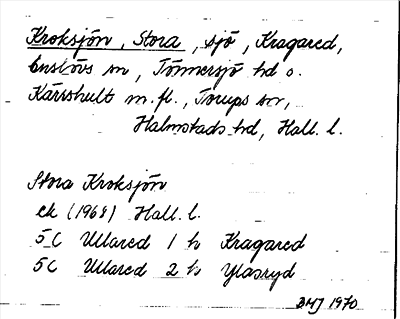 Kroksjön, Stora, sjö, Kragared,
Enslövs sn, Tönnersjö hd o.
Kärrshult m.fl., Torups sn,
Halmstads hd, Hall. l.
Stora Kroksjön
ek (1968) Hall. l.
5C Ullared 1 h Kragared
5C Ullared 2 h Ylasryd
BHJ 1970